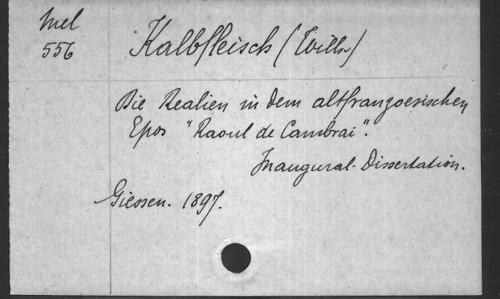 Mel
556
Kalbfleisch (Wilh.)
Die Realien in dem altfranzoesischen
Epos "Raoul de Cambrai".
Inaugural-Dissertation.
Giessen. 1897.